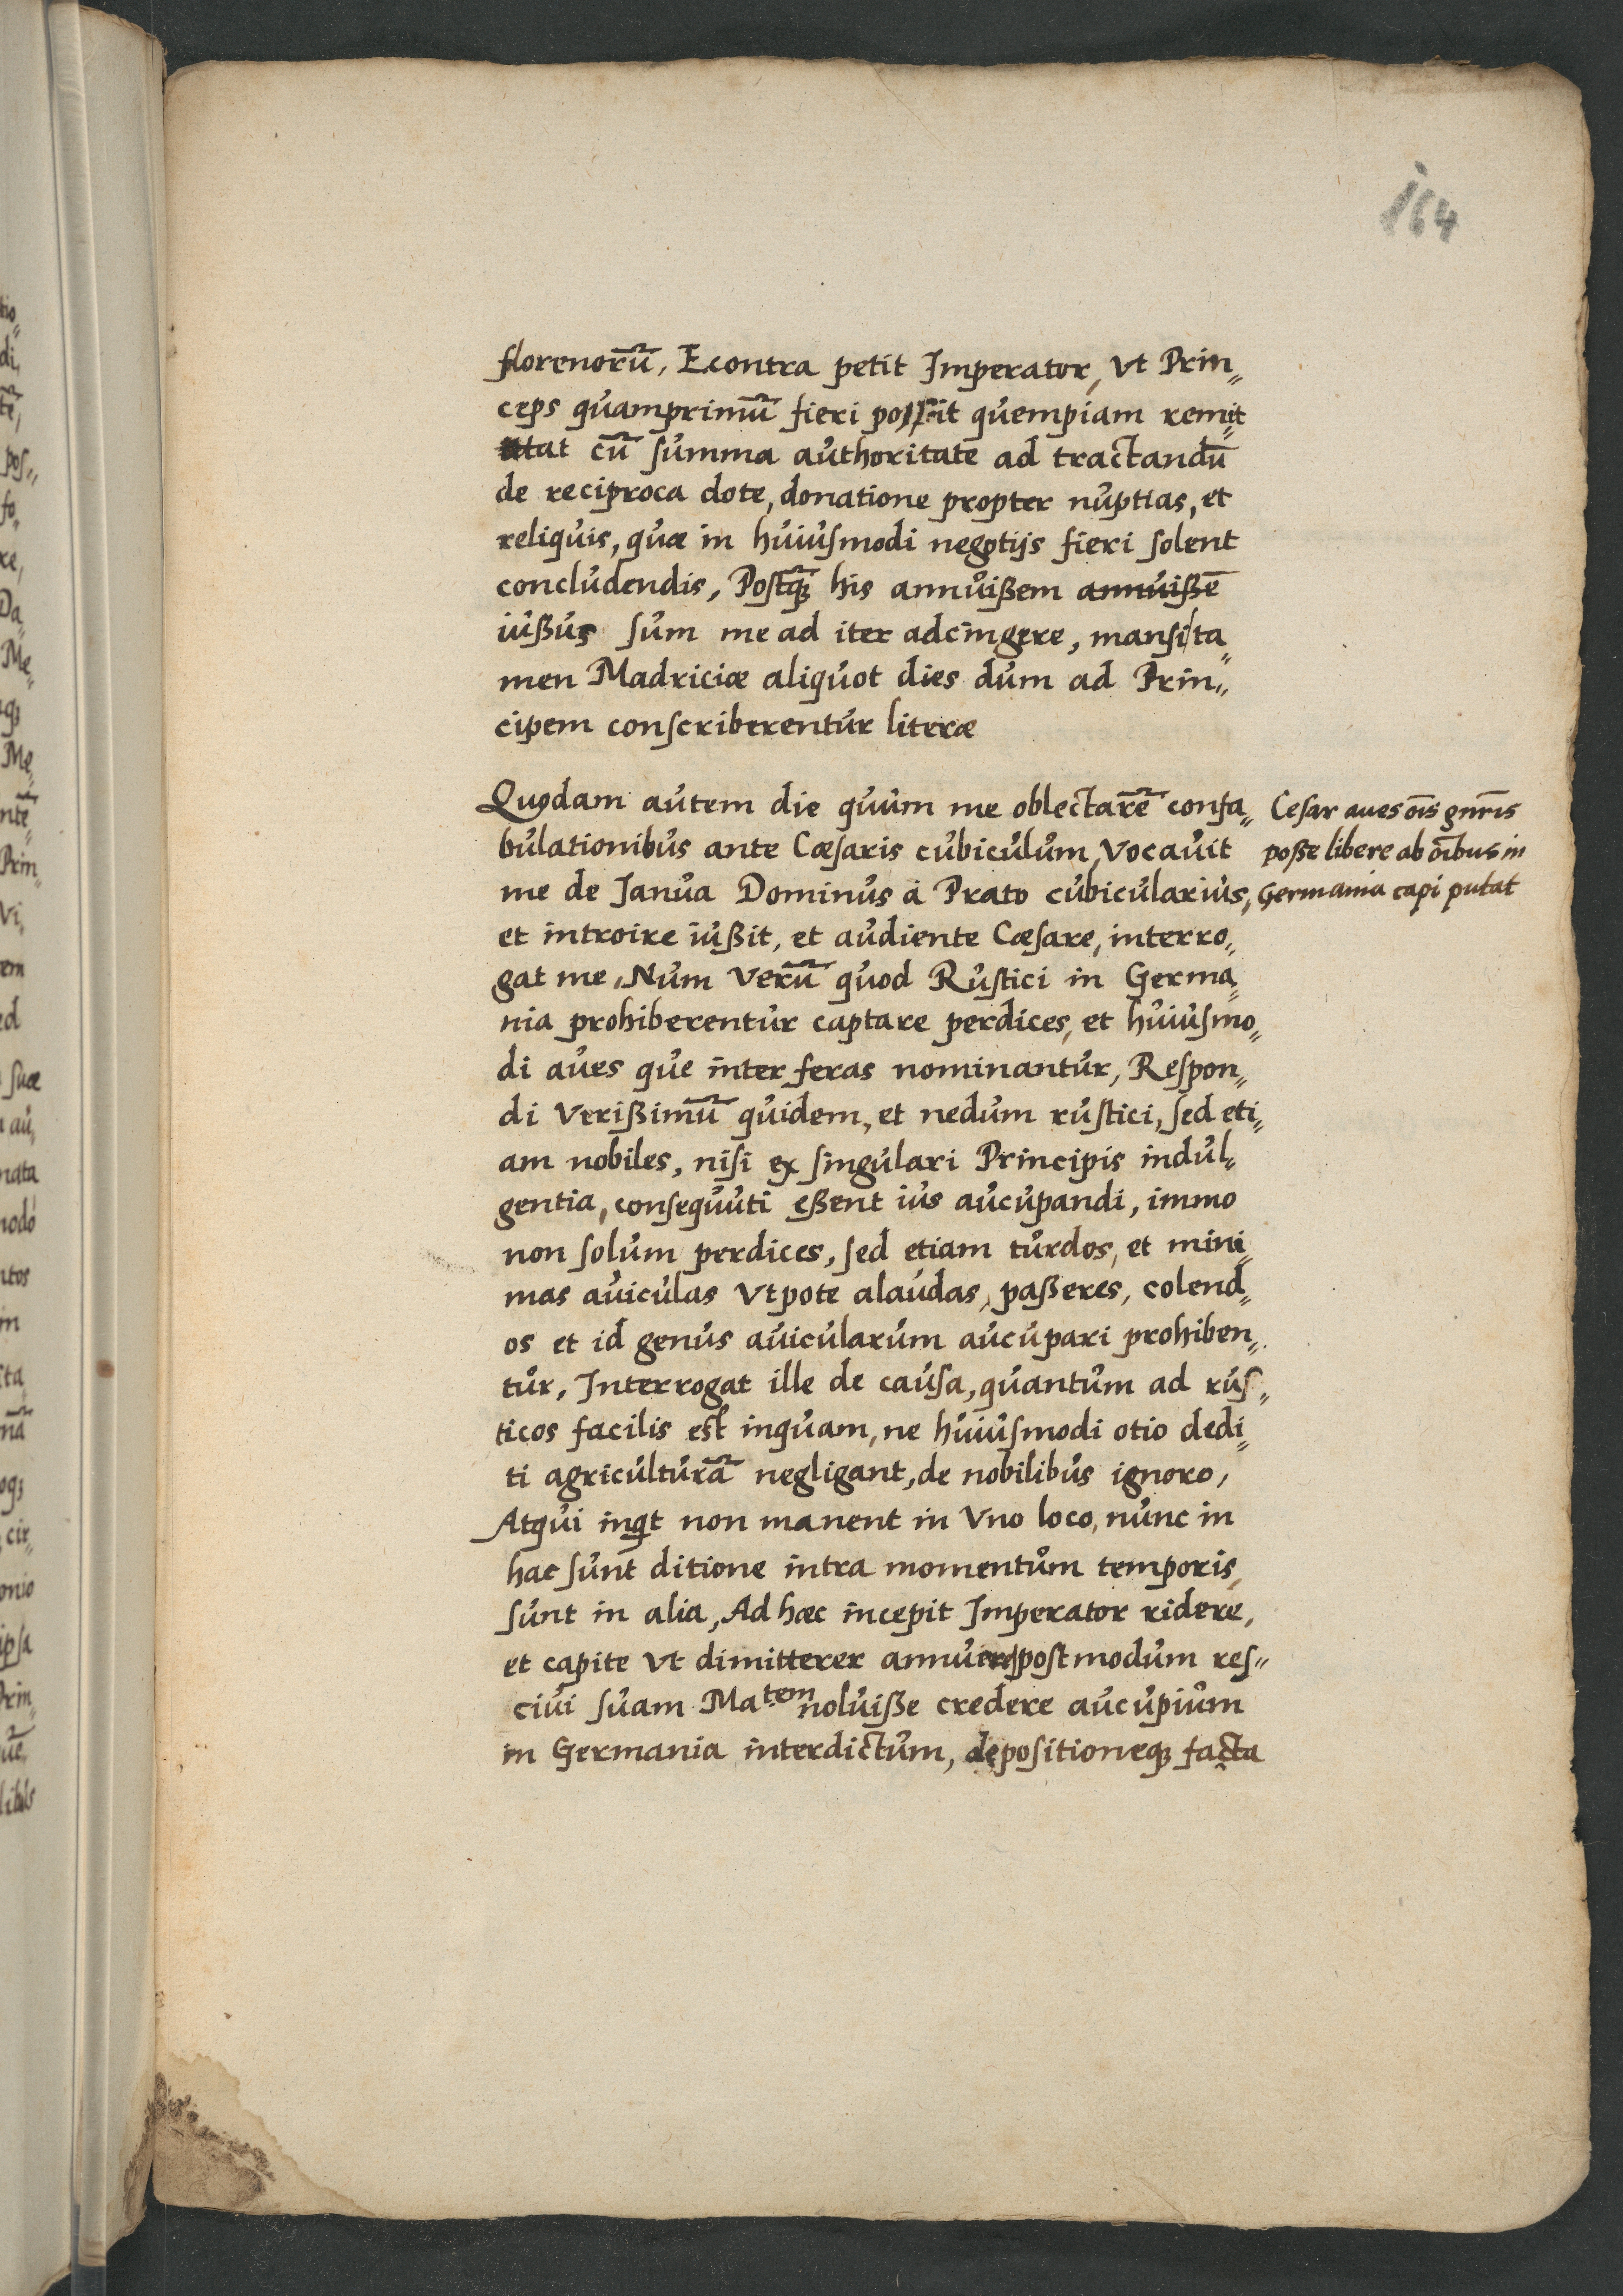 164
florenorū, Econtra petit Imperator, vt Prin„
ceps quamprimū fieri possit quempiam remit„
tat cū summa authoritate ad tractandū
de reciproca dote, donatione propter nuptias, et
reliquis, quæ in huiusmodi negotijs fieri solent
concludendis, Postqꝫ his annuißem annuißē
iußus sum me ad iter adcingere, mansi ta„
men Madriciæ aliquot dies dum ad Prin„
cipem conscriberentur literæ
Quodam autem die quum me oblectarē confa„
bulationibus ante Cæsaris cubiculum, Vocauit
me de Janua Dominus à Prato cubicularius,
et introire iußit, et audiente Cæsare, interro„
gat me, Num verū quod Rustici in Germa„
nia prohiberentur captare perdices, et huiusmo„
di aues que inter feras nominantur, Respon„
di verißimū quidem, et nedum rustici, sed eti„
am nobiles, nisi ex singulari Principis indul„
gentia, consequuti eßent ius aucupandi, immo
non solum perdices, sed etiam turdos, et mini„
mas auiculas vtpote alaudas, paßeres, colend„
os et id genus auicularum aucupari prohiben„
tur, Interrogat ille de causa, quantum ad rus„
ticos facilis est inquam, ne huiusmodi otio dedi„
ti agriculturā negligant, de nobilibus ignoro,
Atqui inqt non manent in vno loco, nunc in
hac sunt ditione intra momentum temporis,
sunt in alia, Ad hæc incepit Imperator ridere,
et capite vt dimitterer annuit postmodum res„
ciui suam Matem noluiße credere aucupium
in Germania interdictum, depositioneqꝫ facta
Cesar aues oīs gnris
poße libere ab oībus in
Germania capi putat